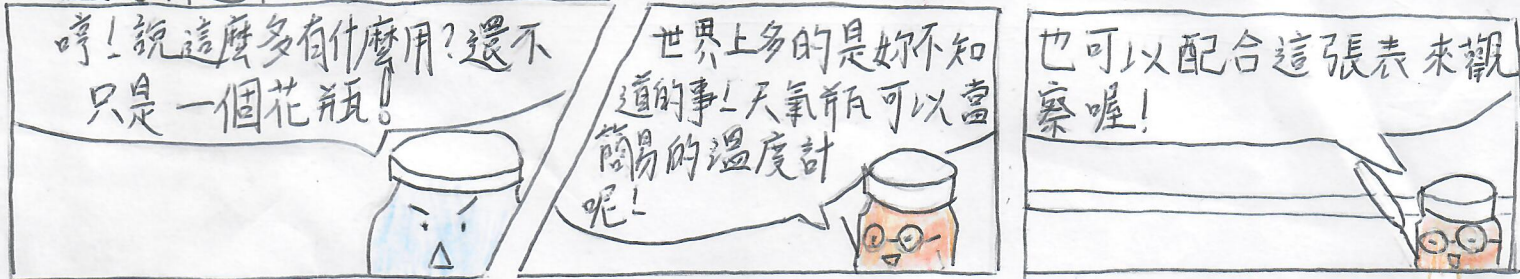 哼！說這麼多有什麼用？還不
只是一個花瓶！
世界上多的是妳不知
道的事！天氣瓶可以當
簡易的溫度計
呢！
也可以配合這張表來觀
察喔！